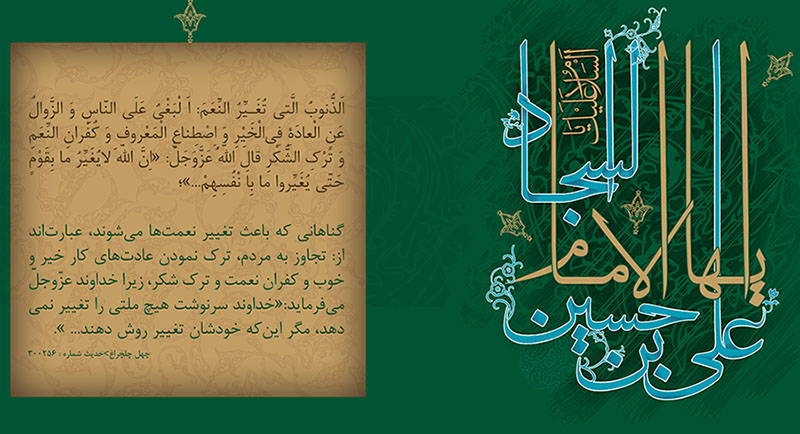 اَلذُّنوبُ الَّتی تُغَیِّرُ النِّعَمَ: اَ لْبَغْیُ عَلَی النّاسِ وَ الزَّوالُ
عَنِ الْعادَةِ فِی‌الْخَیْرِ وَ اصْطِناعِ الْمَعْروفِ وَ كُفْرانِ النِّعَمِ
وَ تُرْكِ الشُّكْرِ قالَ اللّهُ عَزَّوَجَلَّ: «اِنَّ اللّهَ لایُغَیِّرُ ما بِقَوْمٍ
حَتّی یُغَیِّروا ما بِاَ نْفُسِهِمْ...»؛
گناهانی که باعث تغییر نعمت‌ها می‌شوند، عبارت‌اند
از: تجاوز به مردم، ترک نمودن عادت‌های کار خیر و
خوب و کفران نعمت و ترک شکر، زیرا خداوند عزّوجلّ
می‌فرماید:«خداوند سرنوشت هیچ ملتی را تغییر نمی
دهد، مگر این‌که خودشان تغییر روش دهند... ».
چهل چلچراغ>حدیث شماره : ۳۰۰۲۵۶
السلام علیک یا
ایها الامام
السجاد
علی بن حسین